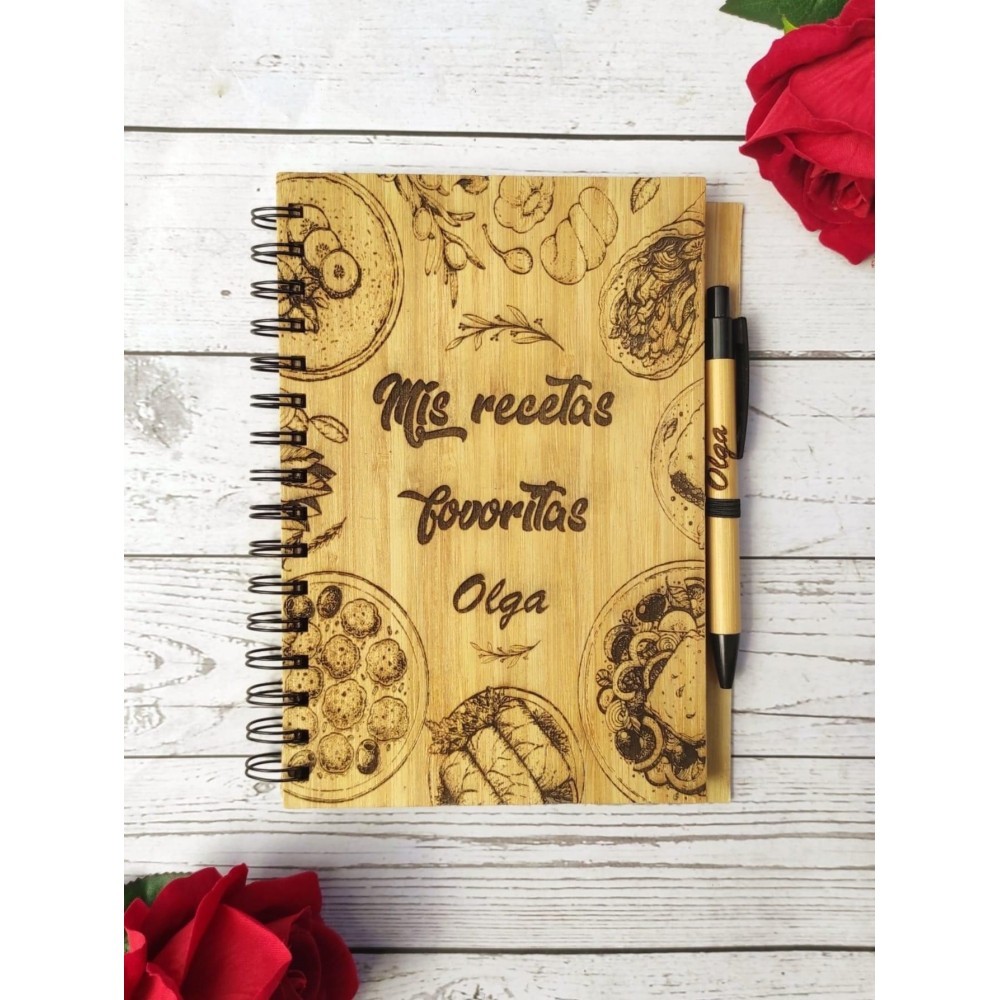 Mis recetas
favoritas
Olga
Olga